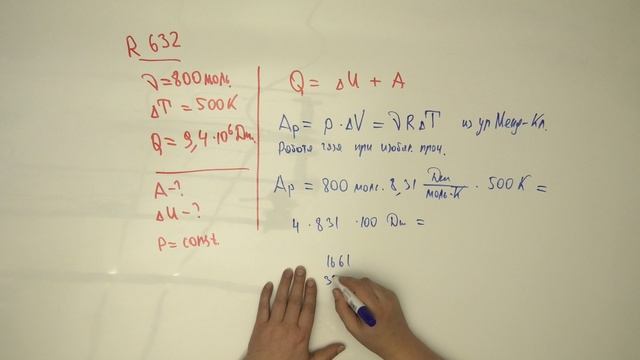 R 632
ν = 800 моль.
ΔT = 500 K
Q = 9,4 · 10⁶ Дж.
A - ?
ΔU - ?
P = const.
Q = ΔU + A
Aр = p · ΔV = νRΔT из ур Менд-Кл.
Работа газа при изобар. проц.
Aр = 800 моль · 8,31 Дж/моль·К · 500 K =
4 · 831 · 100 Дж =
1661
3